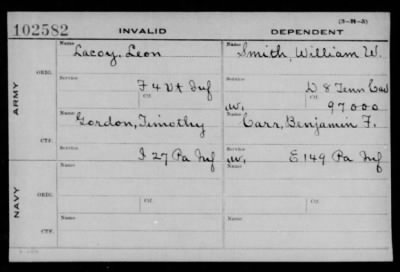 (3—H—3)
102582 INVALID DEPENDENT
Name Name
Lacoy, Leon Smith, William W.
ORIG.
Service Service
F 4 Vt Inf D 8 Tenn Cav
Ctf. W. Ctf. 97000
ARMY
Name Name
Gordon, Timothy Carr, Benjamin F.
CTF.
Service Service
I 27 Pa Inf W. E 149 Pa Inf
NAVY
Name Name
ORIG.
Ctf. Ctf.
Name Name
CTF.